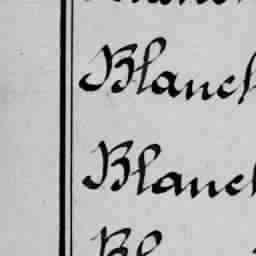 Blanch
Blanch
Bl